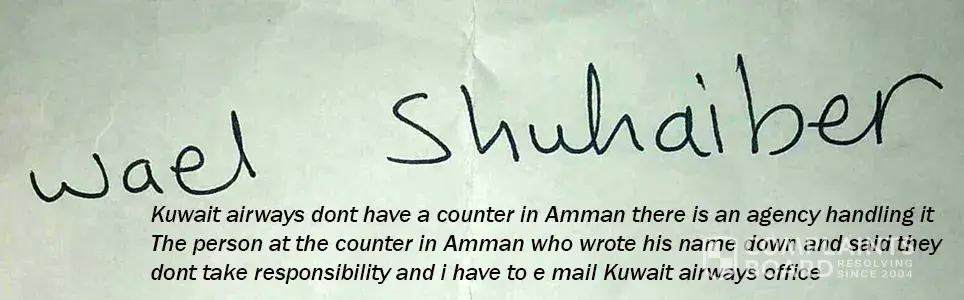 Wael Shuhaiber
Kuwait airways dont have a counter in Amman there is an agency handling it
The person at the counter in Amman who wrote his name down and said they
dont take responsibility and i have to e mail Kuwait airways office
COMPLAINTS
BOARD RESOLVING
SINCE 2004